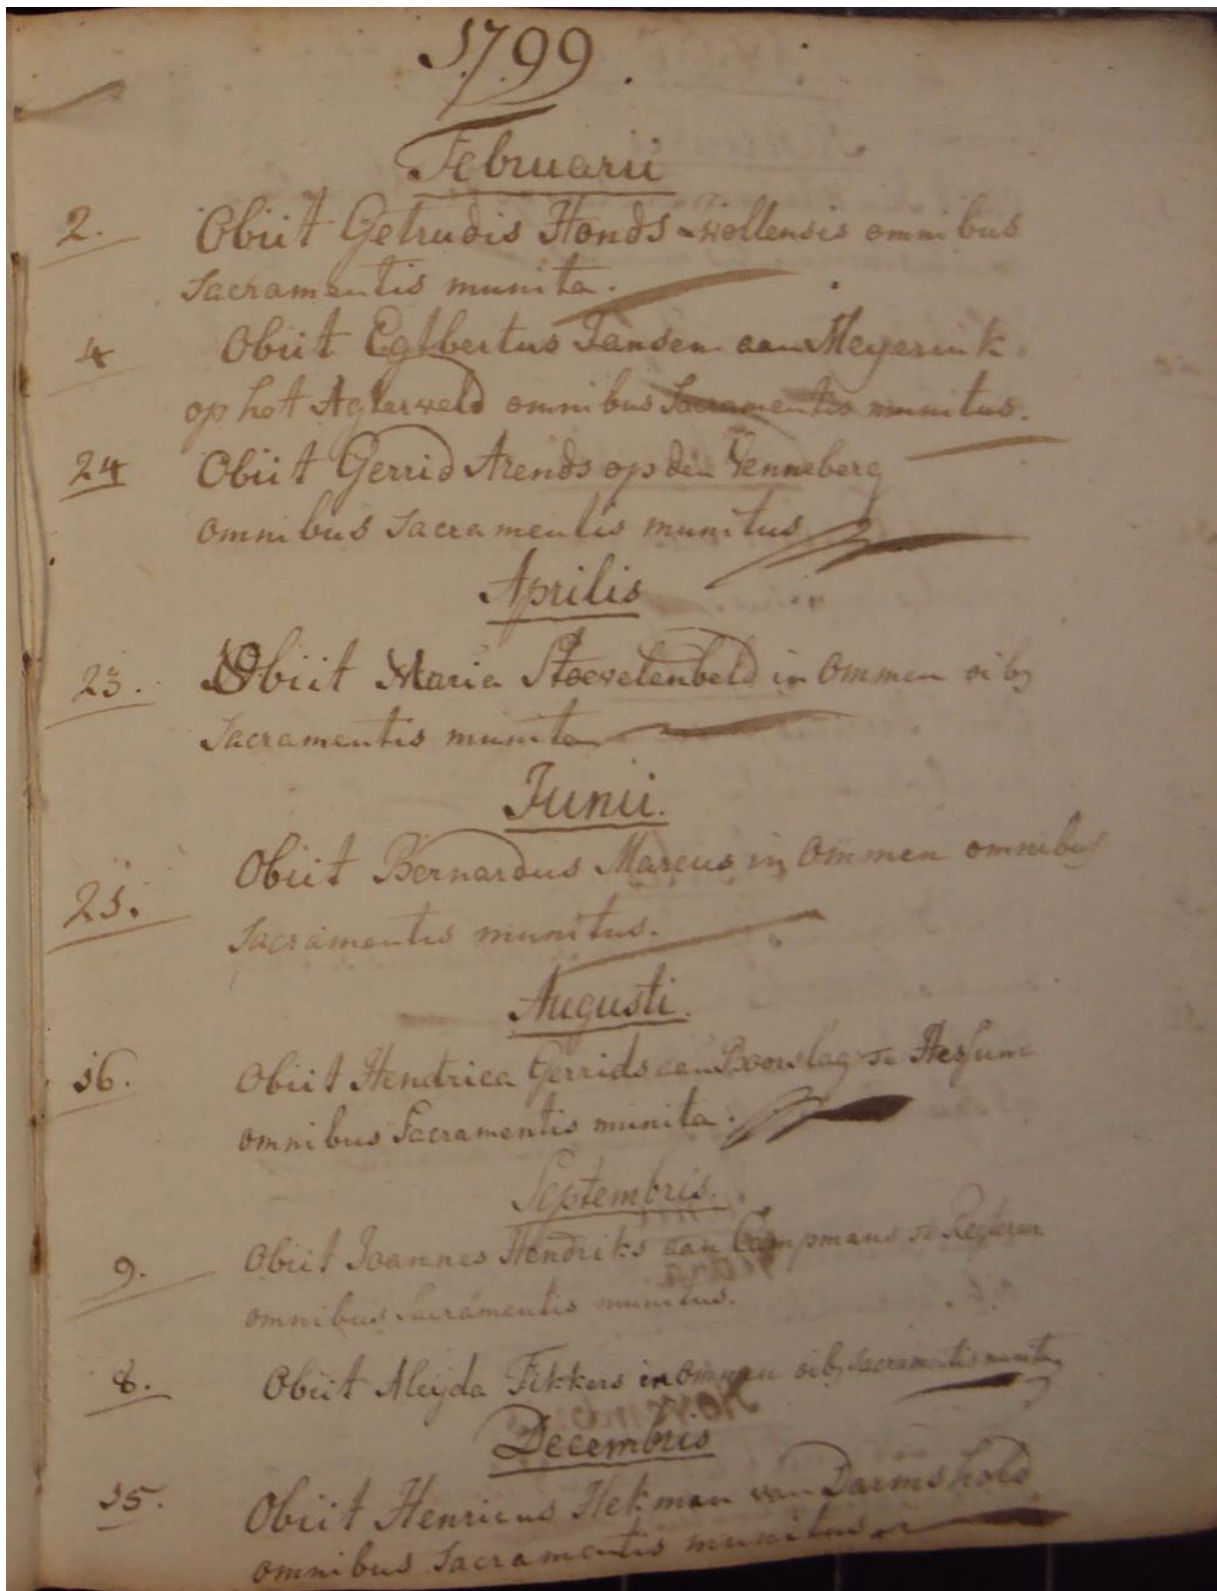 1799.
Februarii
2. Obiit Getrudis Honds Zwollensis omnibus
Sacramentis munita.
4 Obiit Egbertus Jansen aan Meyerink
op het Aglerveld omnibus Sacramentis munitus.
24 Obiit Gerrid Arends op den Venneberg
omnibus Sacramentis munitus
Aprilis
23. Obiit Maria Stoevelenbeld in Ommen oib9
Sacramentis munita
Junii.
25. Obiit Bernardus Marcus in Ommen omnibus
Sacramentis munitus.
Augusti.
16. Obiit Hendrica Gerrids aan Boerslag te Hessum
omnibus Sacramentis munita.
Septembris.
9. Obiit Joannes Hendriks aan Campmans te Regteren
omnibus Sacramentis munitus.
8. Obiit Aleijda Fikkers in Ommen oib9 Sacramentis munita
Decembris
15. Obiit Henricus Hekman van Darmshold
omnibus Sacramentis munitus